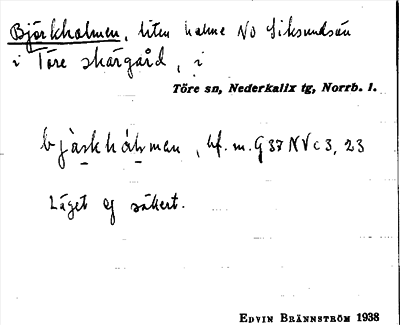 Björkholmen, liten holme NO Siksundsön
i Töre skärgård, i
Töre sn, Nederkalix tg, Norrb. l.
bjàskhål̀man, hf. m. G 37 NV c 3, 23
Läget ej säkert.
EDVIN BRÄNNSTRÖM 1938